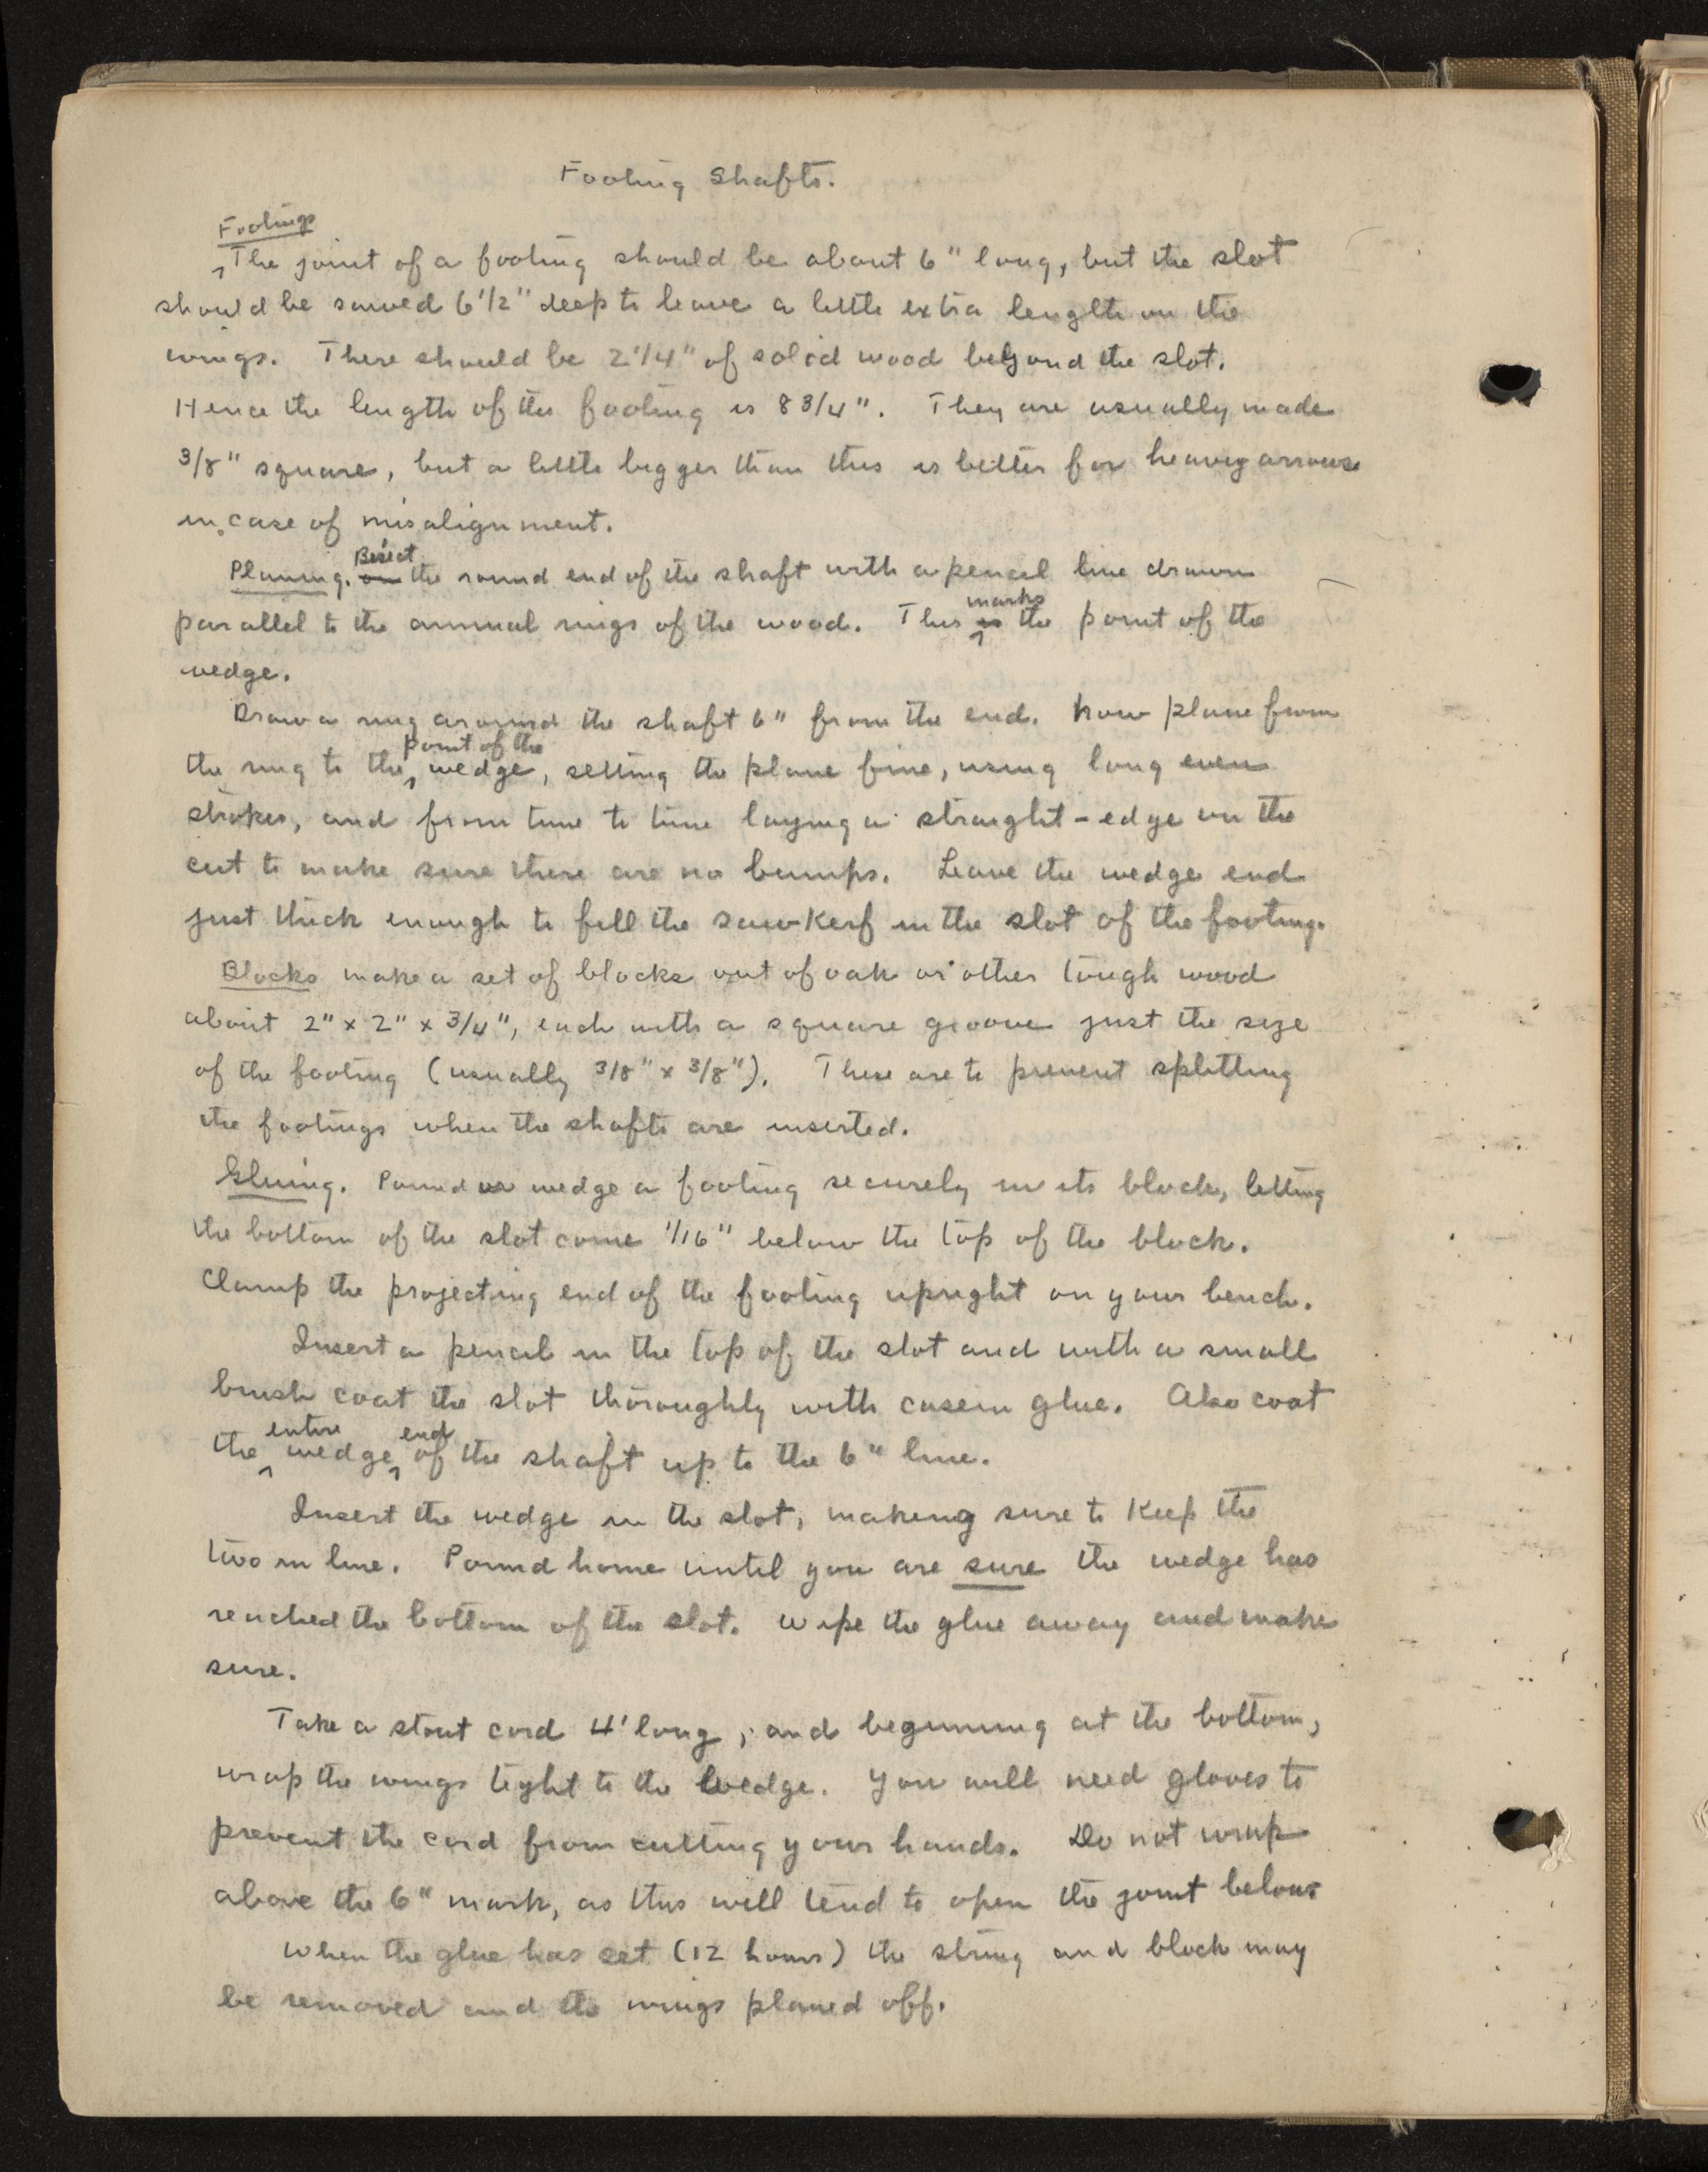 Footing Shafts.
Footings
The joint of a footing should be about 6" long, but the slot
should be sawed 6 1/2" deep to leave a little extra length on the
wings. There should be 2 1/4" of solid wood beyond the slot.
Hence the length of the footing is 8 3/4". They are usually made
3/8" square, but a little bigger than this is better for heavy arrows
in case of misalignment.
Bisect
Planing. on the round end of the shaft with a pencil line drawn
marks
parallel to the annual rings of the wood. This is the point of the
wedge.
Draw a ring around the shaft 6" from the end. Now plane from
point of the
the ring to the wedge, setting the plane fine, using long even
strokes, and from time to time laying a straight-edge on the
cut to make sure there are no bumps. Leave the wedge end
just thick enough to fill the saw-kerf in the slot of the footing.
Blocks make a set of blocks out of oak or other tough wood
about 2" x 2" x 3/4", each with a square groove just the size
of the footing (usually 3/8" x 3/8"). These are to prevent splitting
the footings when the shafts are inserted.
Gluing. Pound or wedge a footing securely in its block, letting
the bottom of the slot come 1/16" below the top of the block.
Clamp the projecting end of the footing upright on your bench.
Insert a pencil in the top of the slot and with a small
brush coat the slot thoroughly with casein glue. Also coat
entire end
the wedge of the shaft up to the 6" line.
Insert the wedge in the slot, making sure to keep the
two in line. Pound home until you are sure the wedge has
reached the bottom of the slot. Wipe the glue away and make
sure.
Take a stout cord 4' long, and beginning at the bottom,
wrap the wings tight to the wedge. You will need gloves to
prevent the cord from cutting your hands. Do not wrap
above the 6" mark, as this will tend to open the joint below
When the glue has set (12 hours) the string and block may
be removed and the wings planed off.